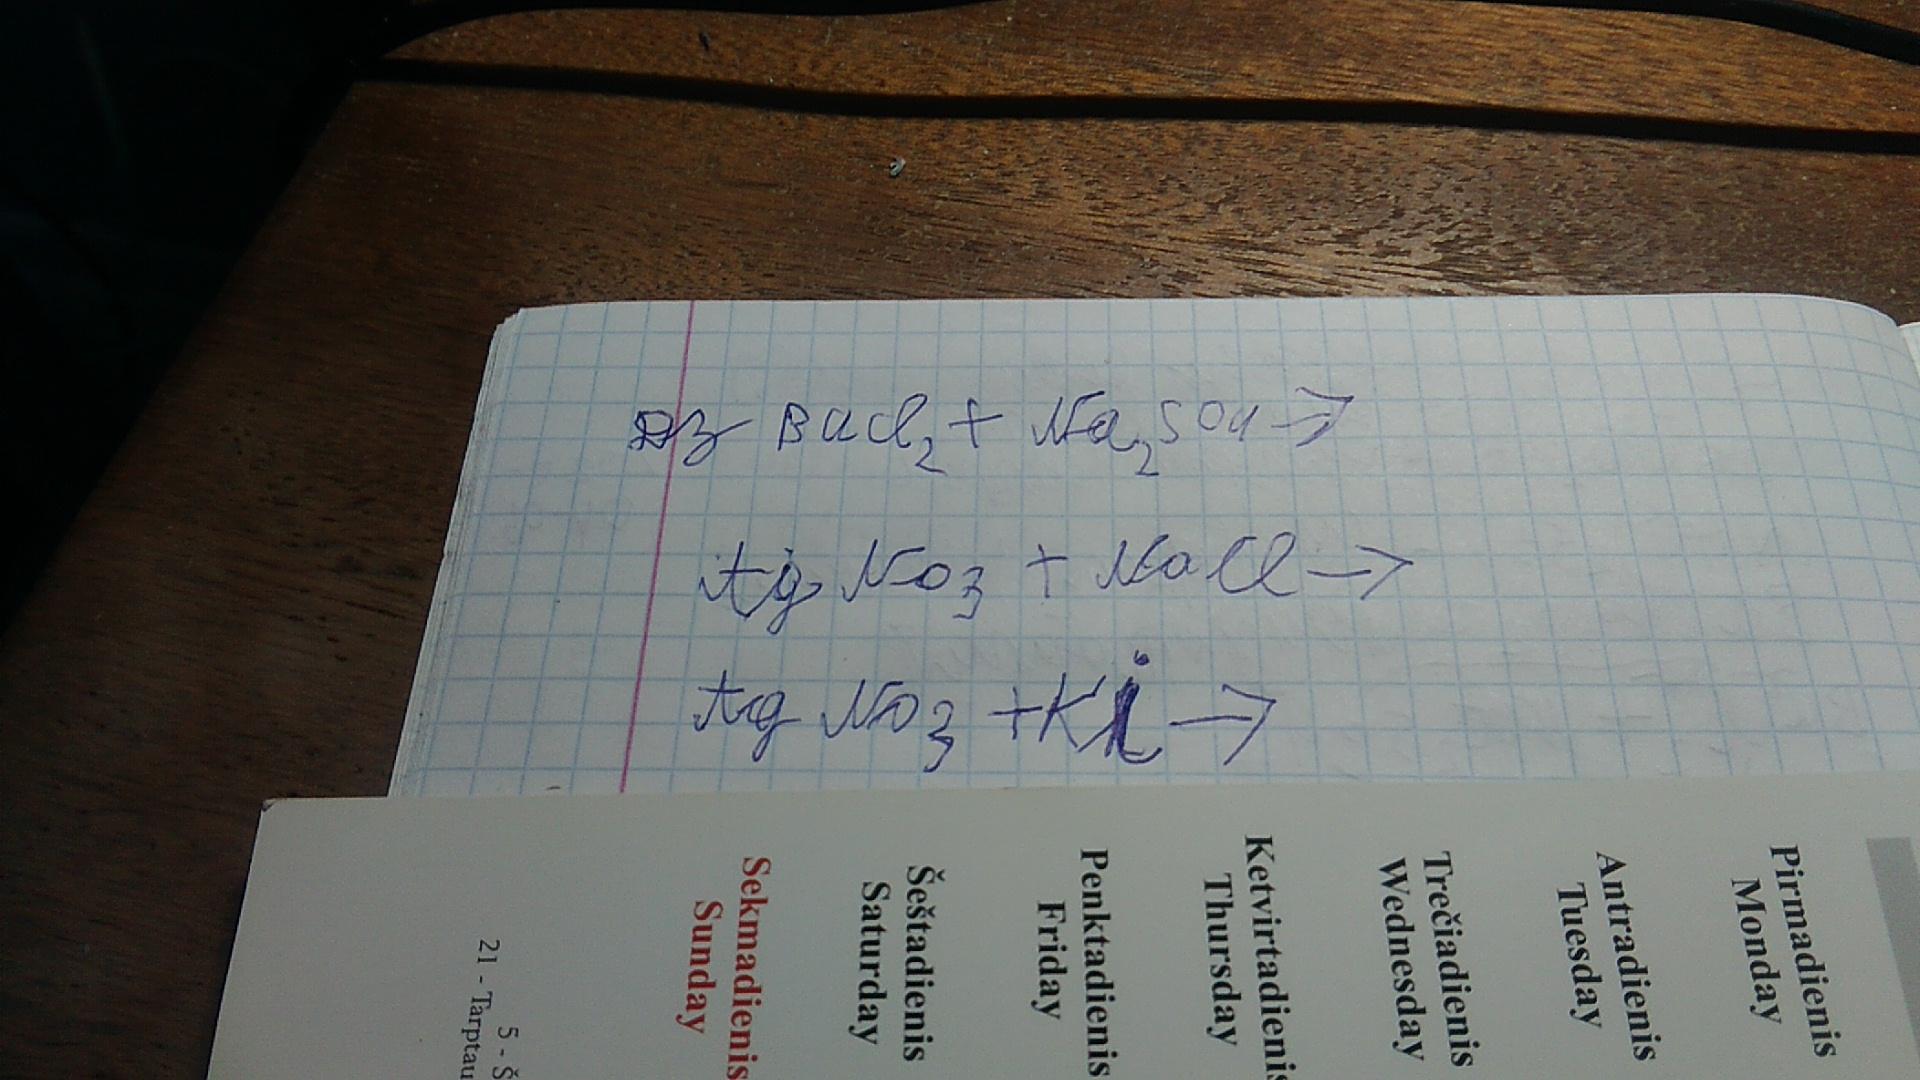 BaCl2 + Na2SO4 →
Ag NO3 + NaCl →
Ag NO3 + Ki →
Pirmadienis
Monday
Antradienis
Tuesday
Trečiadienis
Wednesday
Ketvirtadienis
Thursday
Penktadienis
Friday
Šeštadienis
Saturday
Sekmadienis
Sunday
5 - Š
21 - Tarptau